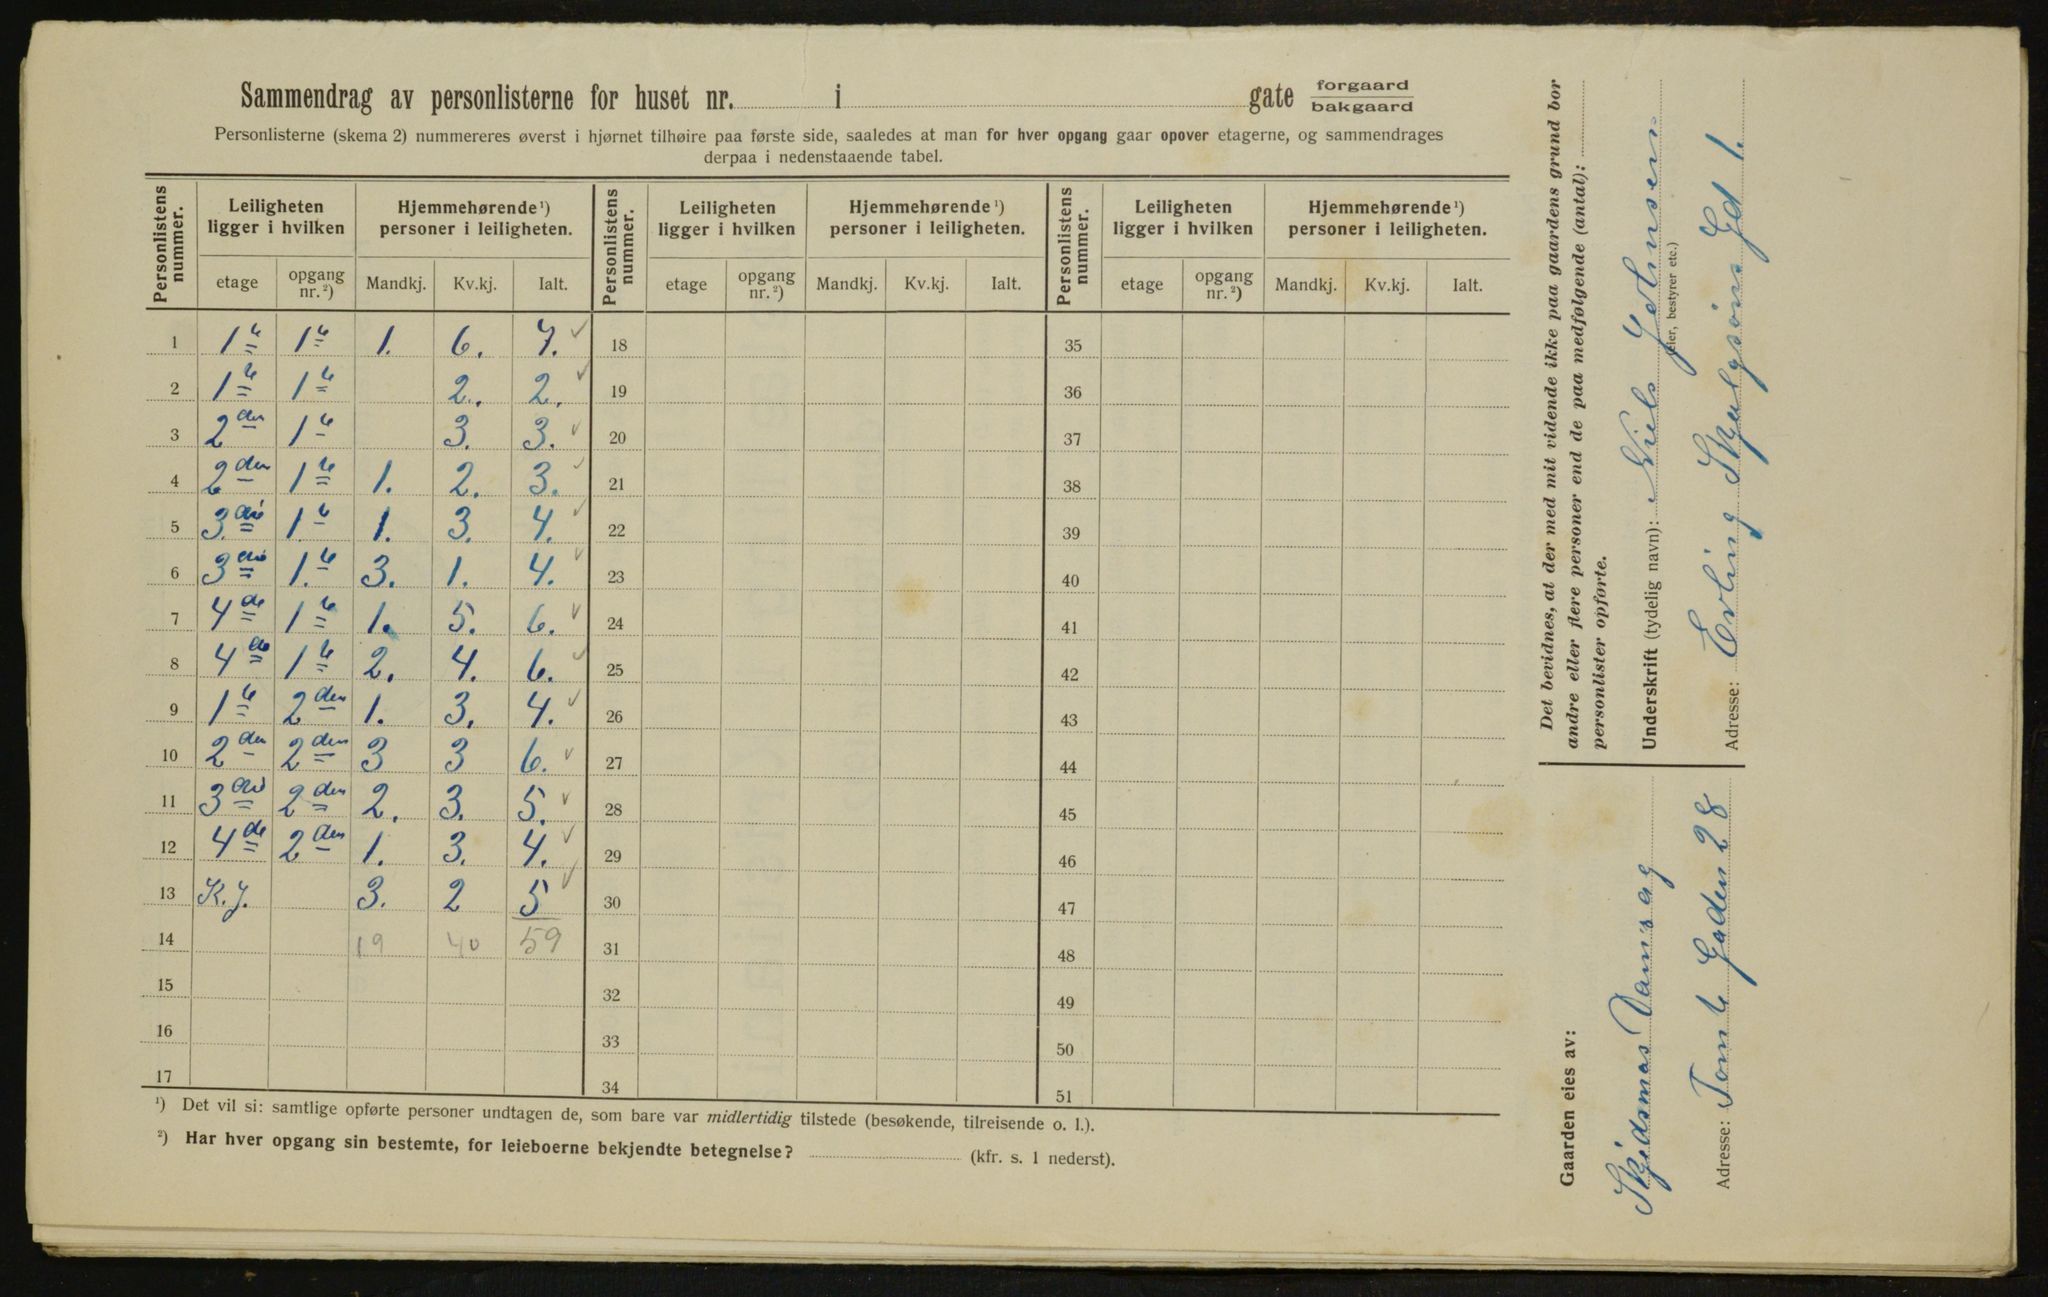 Sammendrag av personlisterne for huset nr. i gate forgaard bakgaard
Personlisterne (skema 2) nummereres øverst i hjørnet tilhøire paa første side, saaledes at man for hver opgang gaar opover etagerne, og sammendrages
derpaa i nedenstaaende tabel.
Personlistens nummer. Leiligheten ligger i hvilken Hjemmehørende ¹) personer i leiligheten. Personlistens nummer. Leiligheten ligger i hvilken Hjemmehørende ¹) personer i leiligheten. Personlistens nummer. Leiligheten ligger i hvilken Hjemmehørende ¹) personer i leiligheten.
etage opgang nr. ²) Mandkj. Kv.kj. Ialt. etage opgang nr. ²) Mandkj. Kv.kj. Ialt. etage opgang nr. ²) Mandkj. Kv.kj. Ialt.
1 1te 1te 1. 6. 7. ✓ 18 35
2 1te 1te 2. 2. ✓ 19 36
3 2den 1te 3. 3. ✓ 20 37
4 2den 1te 1. 2. 3. ✓ 21 38
5 3die 1te 1. 3. 4. ✓ 22 39
6 3die 1.te 3. 1. 4. ✓ 23 40
7 4de 1te 1. 5. 6. ✓ 24 41
8 4de 1te 2. 4. 6. ✓ 25 42
9 1te 2den 1. 3. 4. ✓ 26 43
10 2den 2den 3 3 6. ✓ 27 44
11 3die 2den 2. 3. 5. ✓ 28 45
12 4de 2den 1. 3. 4. ✓ 29 46
13 K.j. 3. 2 5 ✓ 30 47
14 19 40 59 31 48
15 32 49
16 33 50
17 34 51
¹) Det vil si: samtlige opførte personer undtagen de, som bare var midlertidig tilstede (besøkende, tilreisende o. l.).
²) Har hver opgang sin bestemte, for leieboerne bekjendte betegnelse? (kfr. s. 1 nederst).
Det bevidnes, at der med mit vidende ikke paa gaardens grund bor
andre eller flere personer end de paa medfølgende (antal):
personlister opførte.
Underskrift (tydelig navn): Niels Johnsen
(eier, bestyrer etc.)
Adresse: Erling Skjalgsöns Gd 1.
Gaarden eies av:
Skjidsmos
Adresse: Tomte Gaden 28